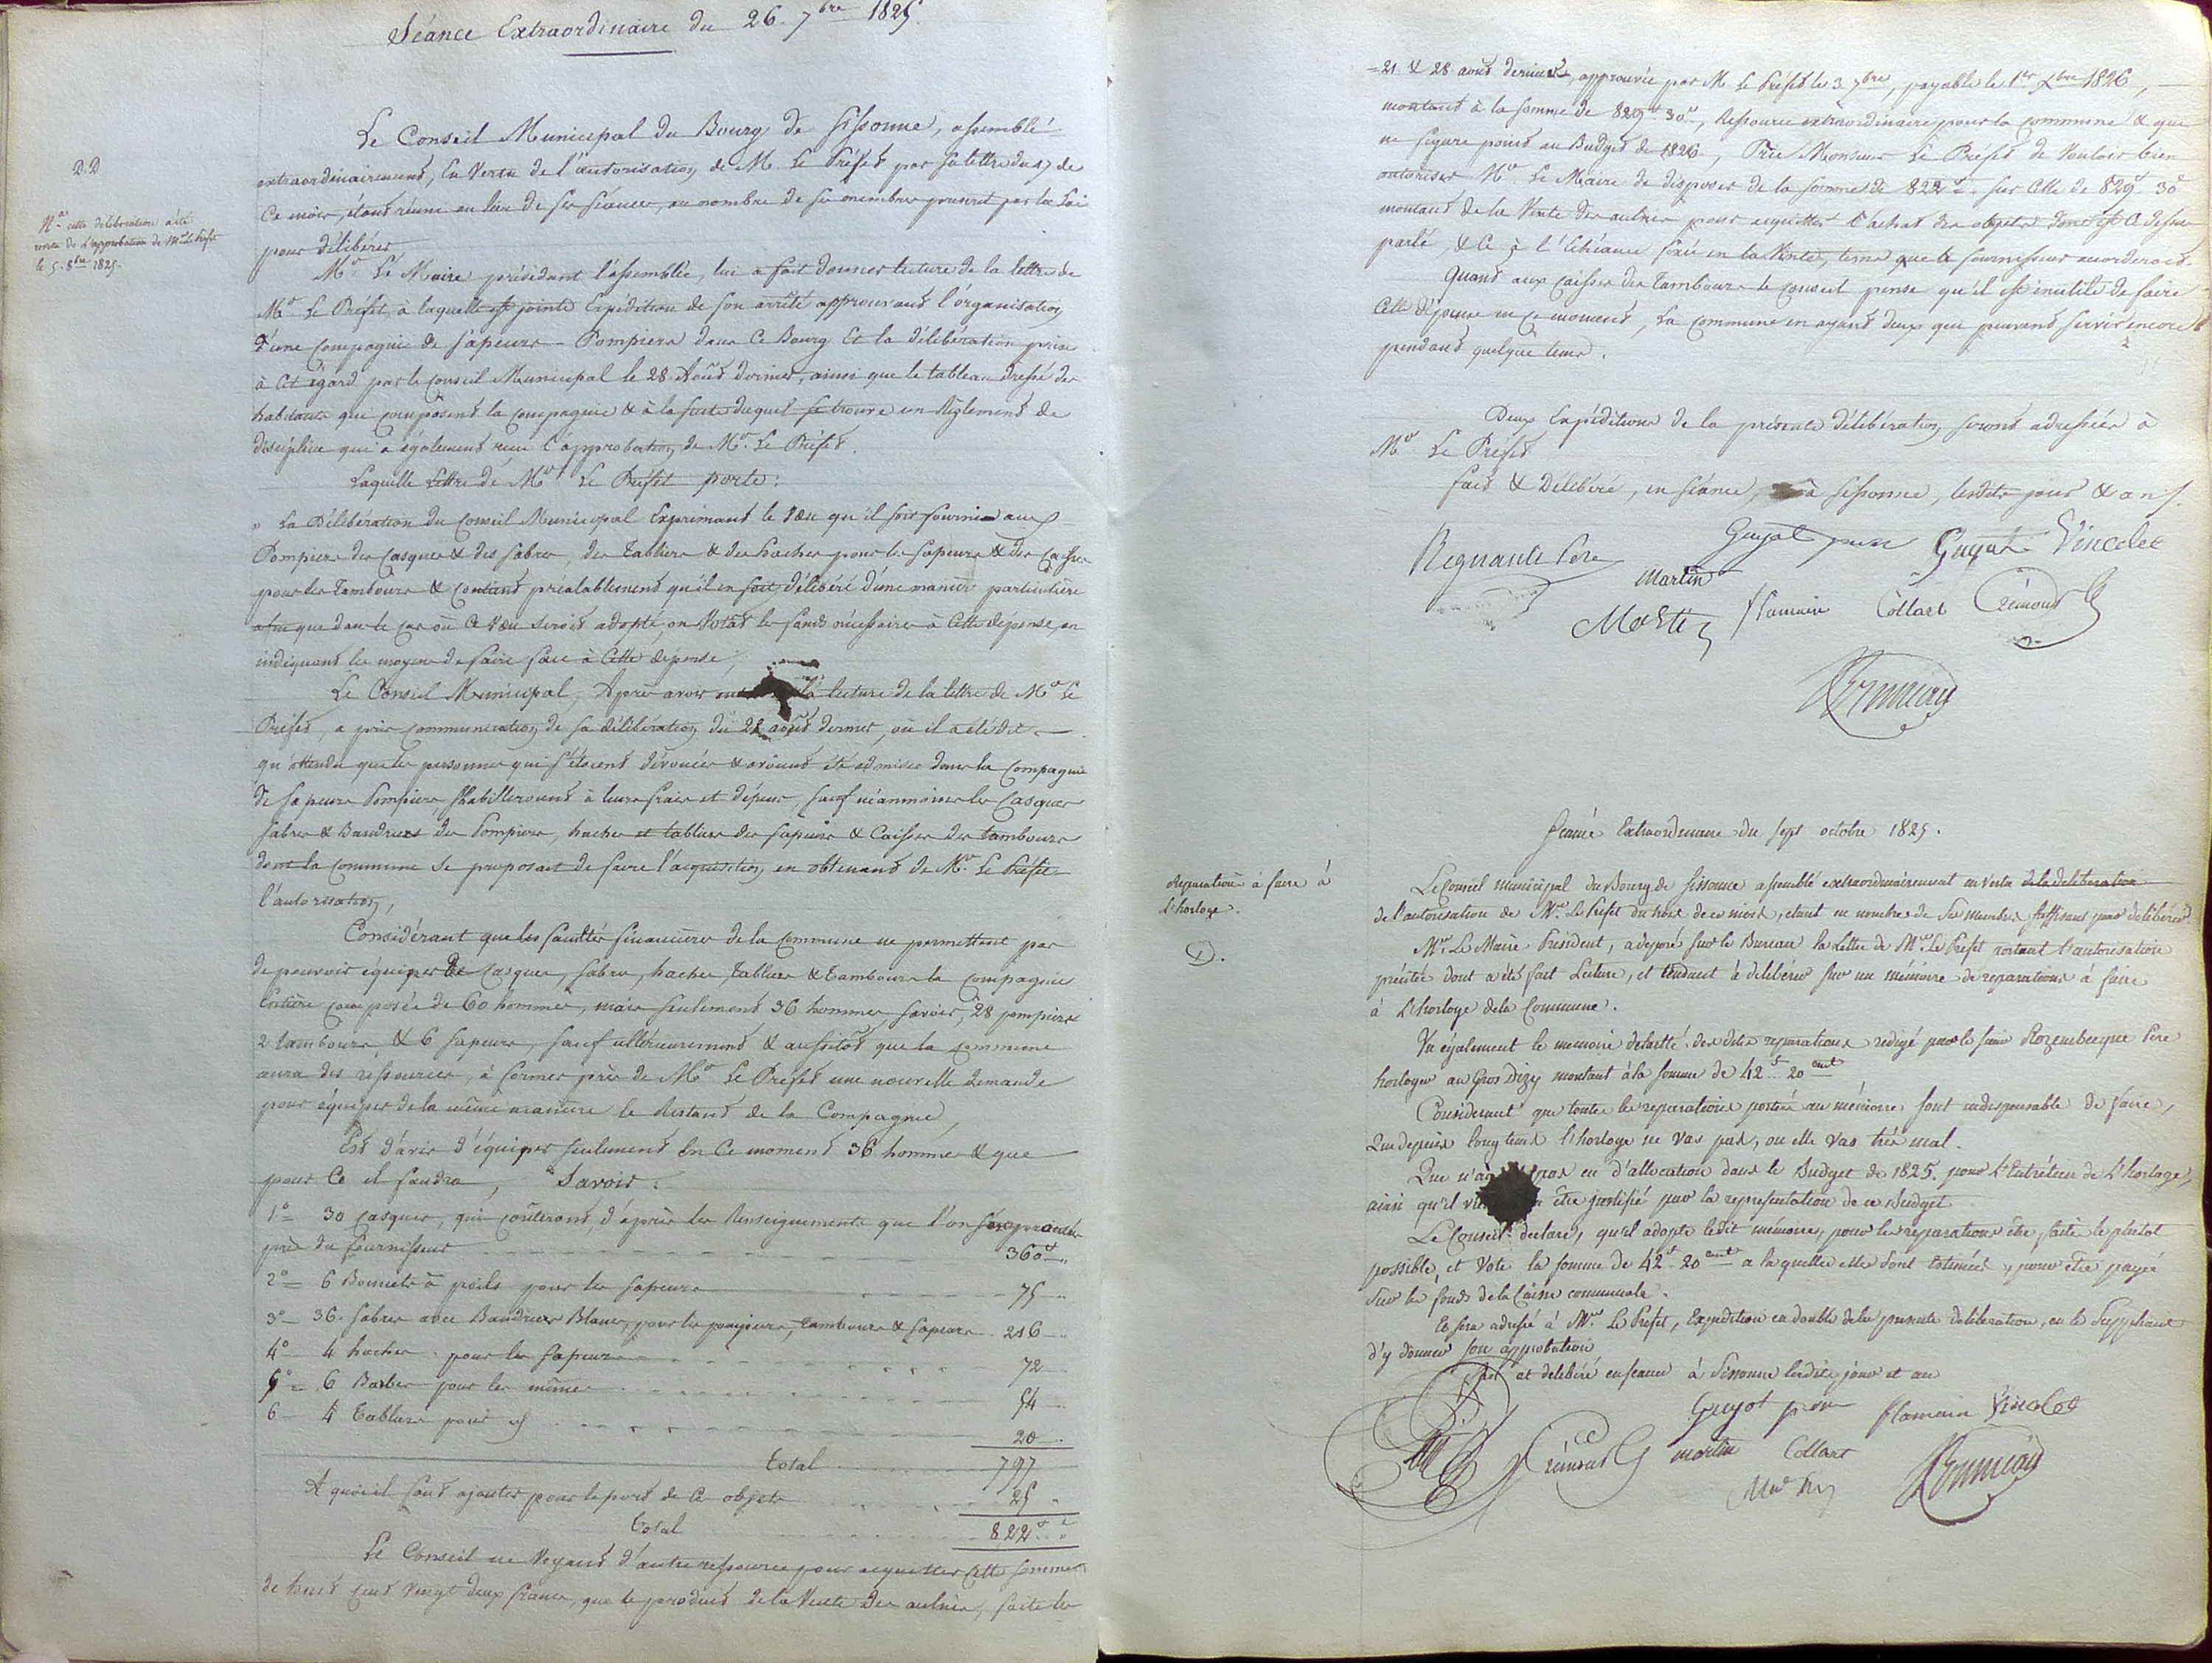 Séance Extraordinaire du 26. 7bre 1825.
D.D
Na cette délibération a été
revetu de l'approbation de Mr Le Préfet
le 5. 8bre 1825.
Le Conseil Municipal du Bourg de Sissonne, assemblé
extraordinairement, en vertu de l'autorisation de M. Le Préfet par sa lettre du 17 de
Ce mois, étant réuni au lieu de ses séances, au nombre de ses membres prescrit par la Loi
pour délibérer
Mr. Le Maire présidant l'assemblée, lui a fait donner lecture de la lettre de
Mr. Le Préfet, à laquelle est jointe Expédition de son arrêté approuvant l'organisation
d'une compagnie de Sapeurs-Pompiers dans ce Bourg et la délibération prise
à cet égard par le Conseil Municipal le 28 Août dernier, ainsi que le tableau dressé des
habitans que composent la compagnie & à la suite duquel se trouve un Règlement de
discipline qui a également reçu l'approbation de Mr. Le Préfet.
Laquelle Lettre de Mr Le Préfet porte:
" La Délibération du Conseil Municipal Exprimant le vœu qu'il soit fourni aux
Pompiers des Casques & des Sabres, des Tabliers & des haches pour les Sapeurs & des Caisses
pour les Tambours & préalablement qu'il en soit délibéré d'une manière particulière
afin que dans le cas où ce vœu seroit adopté, on votât les fonds nécessaires à cette dépense, en
indiquant les moyens de faire face à cette dépense,
Le Conseil Municipal, Après avoir la lecture de la lettre de Mr Le
Préfet, a pris communication de sa délibération du 28 août dernier, où il a été dit
qu'attendu que les personnes qui s'étoient dévouées & avoient été admises dans la Compagnie
de Sapeurs Pompiers, s'habilleroient à leurs frais et dépens, sauf néanmoins les Casques
Sabres & Baudriers des Pompiers, haches et tabliers des Sapeurs & Caisses des tambours
dont la Commune se proposait de faire l'acquisition en obtenant de Mr. Le Préfet
l'autorisation,
Considérant que les facultés financières de la Commune ne permettent pas
de pouvoir équiper de Casques, Sabres, haches, Tabliers & Tambours la compagnie
Entière composée de 60 hommes, mais seulement 36 hommes savoir, 28 pompiers
2 tambours, & 6 Sapeurs, sauf ultérieurement & aussitôt que la Commune
aura des ressources, à former près de Mr Le Préfet une nouvelle demande
pour équiper de la même manière le Restant de la Compagnie,
Est d'avis d'équiper seulement En Ce moment 36 hommes & que
pour Ce il faudra, Savoir:
1o= 30 Casques, qui coûteront, d'après les Renseignements que l'on
près du fournisseur 360f "
2o= 6 Bonnets à poils pour les Sapeurs 75 "
3o- 36. Sabres avec Baudriers Blancs, pour les pompiers, Tambours & Sapeurs . 216 "
4o- 4 haches pour les Sapeurs 72
5o= 6 Barbes pour les mêmes 54
6- 4 Tabliers pour 20
Total 797
A quoi il faut ajouter pour le port de ce objets 25 "
Total 822f "c
Le Conseil ne voyant d'autre ressource pour acquitter cette somme
de huit cent vingt deux francs, que le produit de la Vente des aulnes, faite les
=21 & 28 août derniers, approuvée par M Le Préfet le 3. 7bre, payable le 1er Xbre 1826,
montant à la somme de 829f 30c, Ressource extraordinaire pour la commune & qui
ne figure point au Budget de 1826, Prie Monsieur Le Préfet de Vouloir bien
autoriser Mr. Le Maire de disposer de la somme de 822f. sur Celle de 829f 30c
montant de la Vente des aulnes pour acquitter l'achat des objets dont est Ci dessus
parlé, & Ce à l'Echéance fixée en la Vente, terme que le fournisseur accorderoit.
Quant aux caisses des Tambours le Conseil pense qu'il est inutile de faire
Cette dépense en ce moment, La Commune en ayant deux qui peuvent servir encore
pendant quelque tems.
Deux Expéditions de la présente délibération seront adressées à
Mr Le Préfet
Fait & Délibéré, en séance, à Sissonne, lesdits jour & an.
Regnault Père Guyot père Guyot Vincelet
Martin
Martin flamain Collart Crémont
Séance Extraordinaire du sept octobre 1825.
Reparations à faire à
L'horloge.
D.
Le Conseil municipal du Bourg de Sissonne assemblé extraordinairement en vertu de la deliberation
de l'autorisation de Mr. Le Prefet du trois de ce mois, étant en nombre de Ses membres suffisant pour délibérer
Mr. Le Maire Président, a déposé sur le Bureau la Lettre de Mr. Le Prefet portant l'autorisation
précitée dont a été fait Lecture, et tendant à délibérer sur un mémoire de reparations à faire
à L'horloge de la Commune.
Vu également le memoire détaillé des dites reparations redigé par le sieur Rozembecque Père
horloger au Gros Dizy montant à la somme de 42f. 20cent
Considerant que toutes les reparations portées au mémoire sont indispensable de faire,
Que depuis longtems l'horloge ne vas pas, ou elle vas très mal.
Que n'a pas eu d'allocation dans le Budget de 1825. pour L'Entrétien de L'horloge,
ainsi qu'il être justifié par la représentation de ce Budget
Le Conseil declare, qu'il adopte ledit mémoire, pour les reparations être faites le plutot
possible, et Vote la somme de 42f. 20cent a laquelle elles sont estimées, pour être payée
sur les fonds de la Caisse communale.
Et sera adressé à Mr. Le Prefet, Expédition en double de la présente délibération, en le Suppliant
d'y donner son approbation
Fait et délibéré en séance à Sissonne lesdits jour et an
Guyot père flamain Vincelet
Crémont martin Collart
Martin